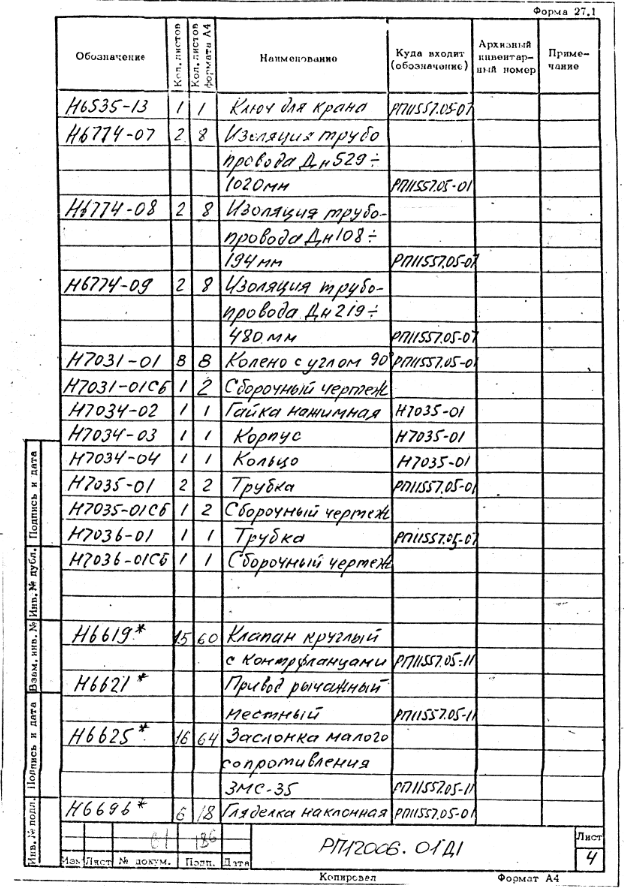 Форма 27.1
Обозначение Кол. листов Кол. листов формата А4 Наименование Куда входит (обозначение) Архивный инвентарный номер Примечание
Н6535-13 1 1 Ключ для крана РП11557.05-07
Н6774-07 2 8 Изоляция трубо
провода Дн529÷
1020мм РП11557.05-01
Н6774-08 2 8 Изоляция трубо-
провода Дн108÷
194мм РП11557.05-07
Н6774-09 2 8 Изоляция трубо-
провода Дн219÷
480мм РП11557.05-07
Н7031-01 8 8 Колено с углом 90° РП11557.05-01
Н7031-01СБ 1 2 Сборочный чертеж
Н7034-02 1 1 Гайка нажимная Н7035-01
Н7034-03 1 1 Корпус Н7035-01
Н7034-04 1 1 Кольцо Н7035-01
Н7035-01 2 2 Трубка РП11557.05-01
Н7035-01СБ 1 2 Сборочный чертеж
Н7036-01 1 1 Трубка РП11557.05-07
Н7036-01СБ 1 1 Сборочный чертеж
Н6619* 15 60 Клапан круглый
с контрфланцами РП11557.05-11
Н6621* Привод рычажный
местный РП11557.05-11
Н6625* 16 64 Заслонка малого
сопротивления
ЗМС-35 РП11557.05-11
Н6696* 6 18 Гляделка наклонная РП11557.05-01
Инв. № подл. Подпись и дата Взам. инв. № Инв. № дубл. Подпись и дата
Изм Лист № докум. Подп. Дата
РП12006.01Д1
Лист
4
Копировал Формат А4